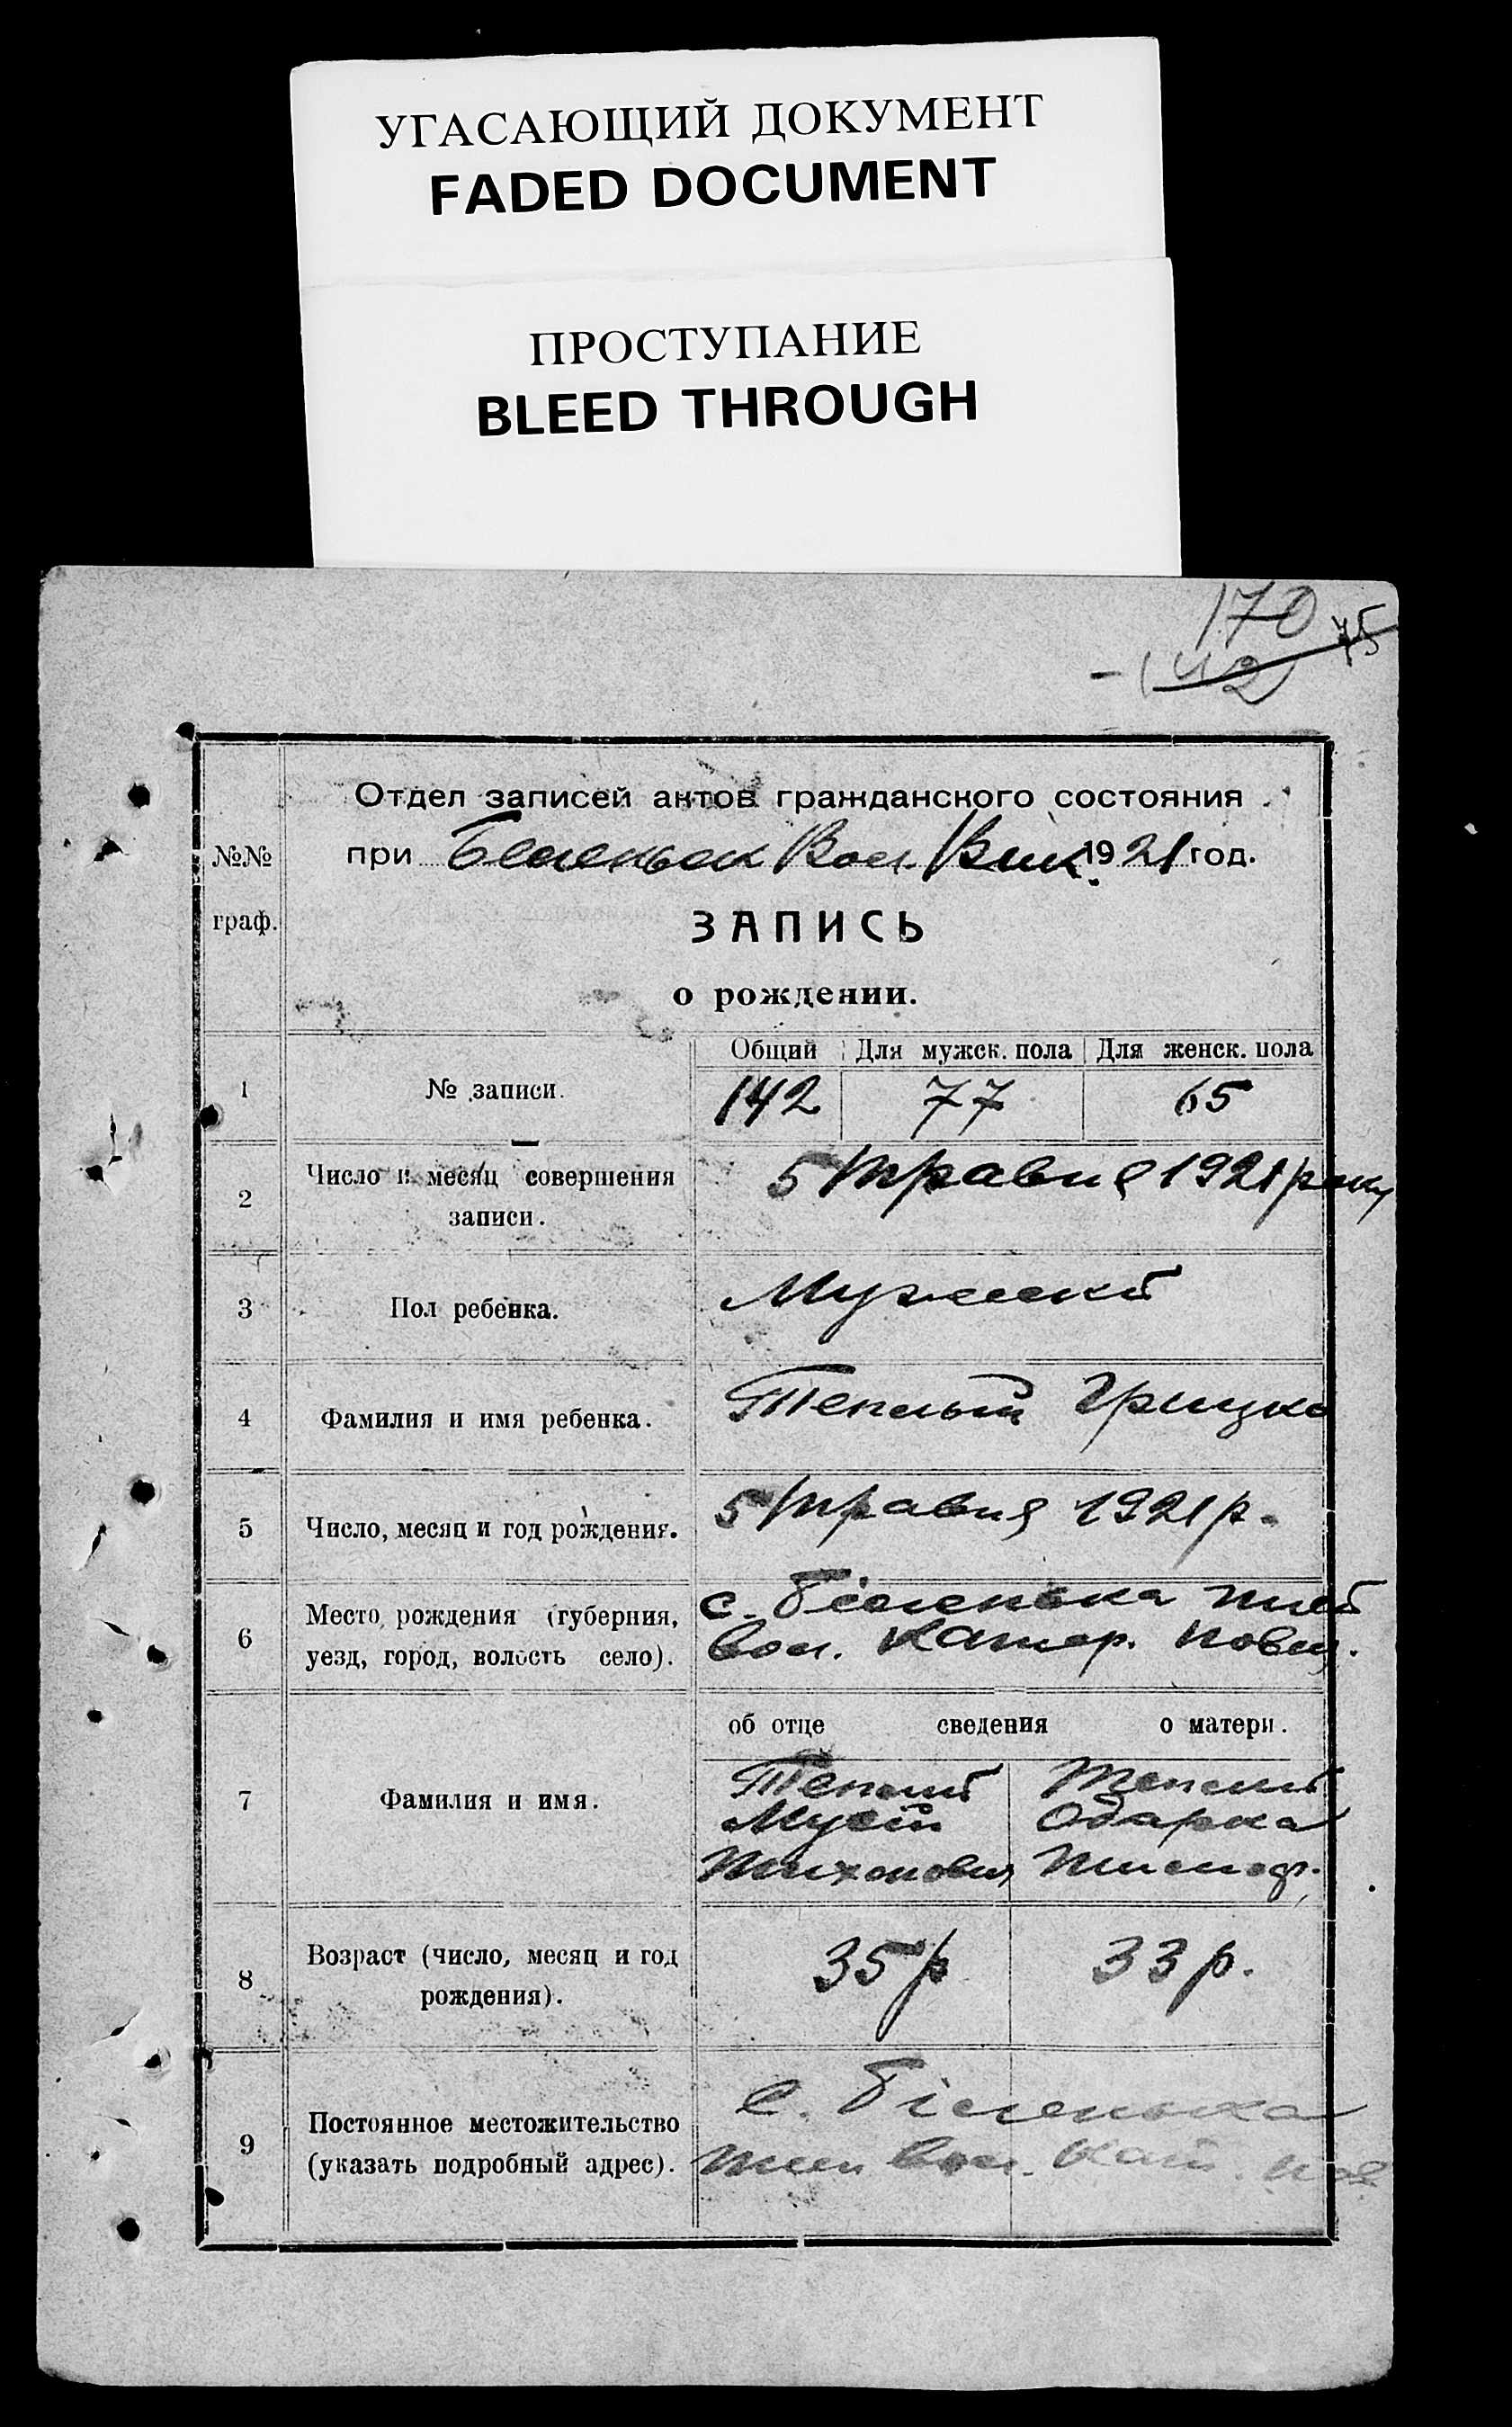 УГАСАЮЩИЙ ДОКУМЕНТ
FADED DOCUMENT
ПРОСТУПАНИЕ
BLEED THROUGH
170 75
142
Отдел записей актов гражданского состояния
№№ при Беленьск Вол. Вик. 1921 год.
граф. ЗАПИСЬ
о рождении.
Общий Для мужск. пола Для женск. пола
1 № записи. 142 77 65
2 Число и месяц совершения записи. 5 травня 1921 року
3 Пол ребенка.
4 Фамилия и имя ребенка. Теплый Грицко
5 Число, месяц и год рождения. 5 травня 1921 р.
6 Место рождения (губерния, с. Біленька
уезд, город, волость село). вол. Катер. повит.
об отце сведения о матери.
7 Фамилия и имя.
Одарка
Тихонович
8 Возраст (число, месяц и год рождения). 35 р 33 р.
9 Постоянное местожительство с. Біленька
(указать подробный адрес). вол. Кат. пов.